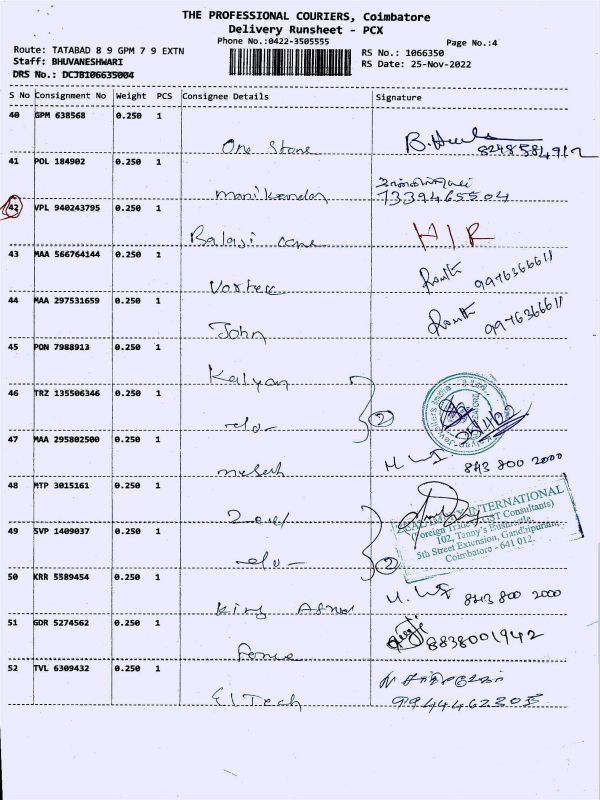 THE PROFESSIONAL COURIERS, Coimbatore
Delivery Runsheet - PCX
Phone No.:0422-3505555
Page No.:4
Route: TATABAD 8 9 GPM 7 9 EXTN
RS No.: 1066350
Staff: BHUVANESHWARI
RS Date: 25-Nov-2022
DRS No.: DCJB106635004
S No Consignment No Weight PCS Consignee Details Signature
40 GPM 638568 0.250 1
One Stone
8248584912
41 POL 184902 0.250 1
manikandan
7339465504
42 VPL 940243795 0.250 1
Balaji
43 MAA 566764144 0.250 1
9976366611
44 MAA 297531659 0.250 1
John
9976366611
45 PON 7988913 0.250 1
Kalyan
46 TRZ 135506346 0.250 1
-do-
2
47 MAA 295802500 0.250 1
843 800 2000
48 MTP 3015161 0.250 1
INTERNATIONAL
(Foreign Trade & GST Consultants)
102, Tanny's
5th Street Extension, Gandhipuram,
Coimbatore - 641 012
49 SVP 1409037 0.250 1
-do-
2
50 KRR 5589454 0.250 1
King
843 800 2000
51 GDR 5274562 0.250 1
8838001942
52 TVL 6309432 0.250 1
El Tech
9944462305